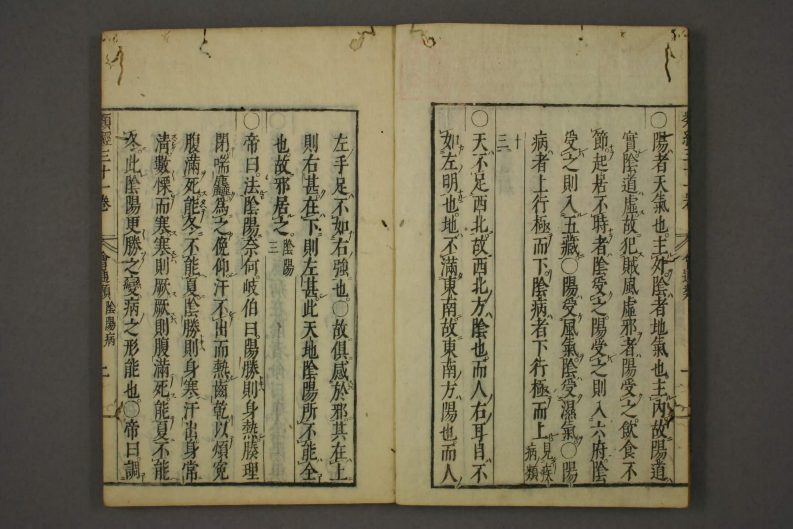 ○陽者天氣也主外陰者地氣也主內故陽道
實陰道虛故犯賊風虛邪者陽受之飲食不
節起居不時者陰受之陽受之則入六府陰
受之則入五藏○陽受風氣陰受濕氣○陽
病者上行極而下陰病者下行極而上見疾病類
十三
○天不足西北故西北方陰也而人右耳目不
如左明也地不滿東南故東南方陽也而人
左手足不如右強也○故俱感於邪其在上
則右甚在下則左甚此天地陰陽所不能全
也故邪居之陰陽三
○帝曰法陰陽奈何岐伯曰陽勝則身熱腠理
閉喘麤為之俛仰汗不出而熱齒乾以煩寃
腹滿死能冬不能夏陰勝則身寒汗出身常
清數慄而寒寒則厥厥則腹滿死能夏不能
冬此陰陽更勝之變病之形能也○帝曰調
類經三十一卷 會通類 陰陽病 上